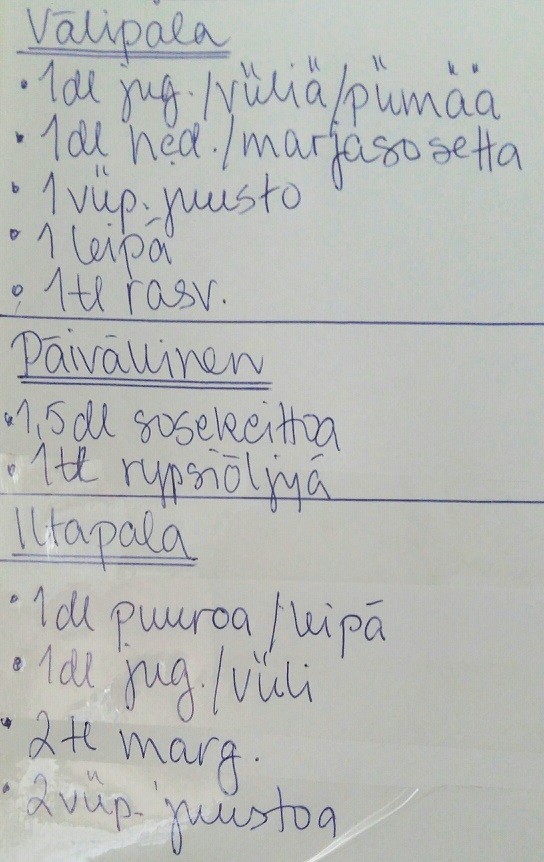 Välipala
• 1dl jug./viiliä/piimää
• 1dl hed./marjasosetta
• 1 viip. juusto
• 1 leipä
• 1tl rasv.
Päivällinen
• 1,5dl sosekeittoa
• 1tl rypsiöljyä
Iltapala
• 1dl puuroa/leipä
• 1dl jug./viili
• 2tl marg.
• 2viip. juustoa